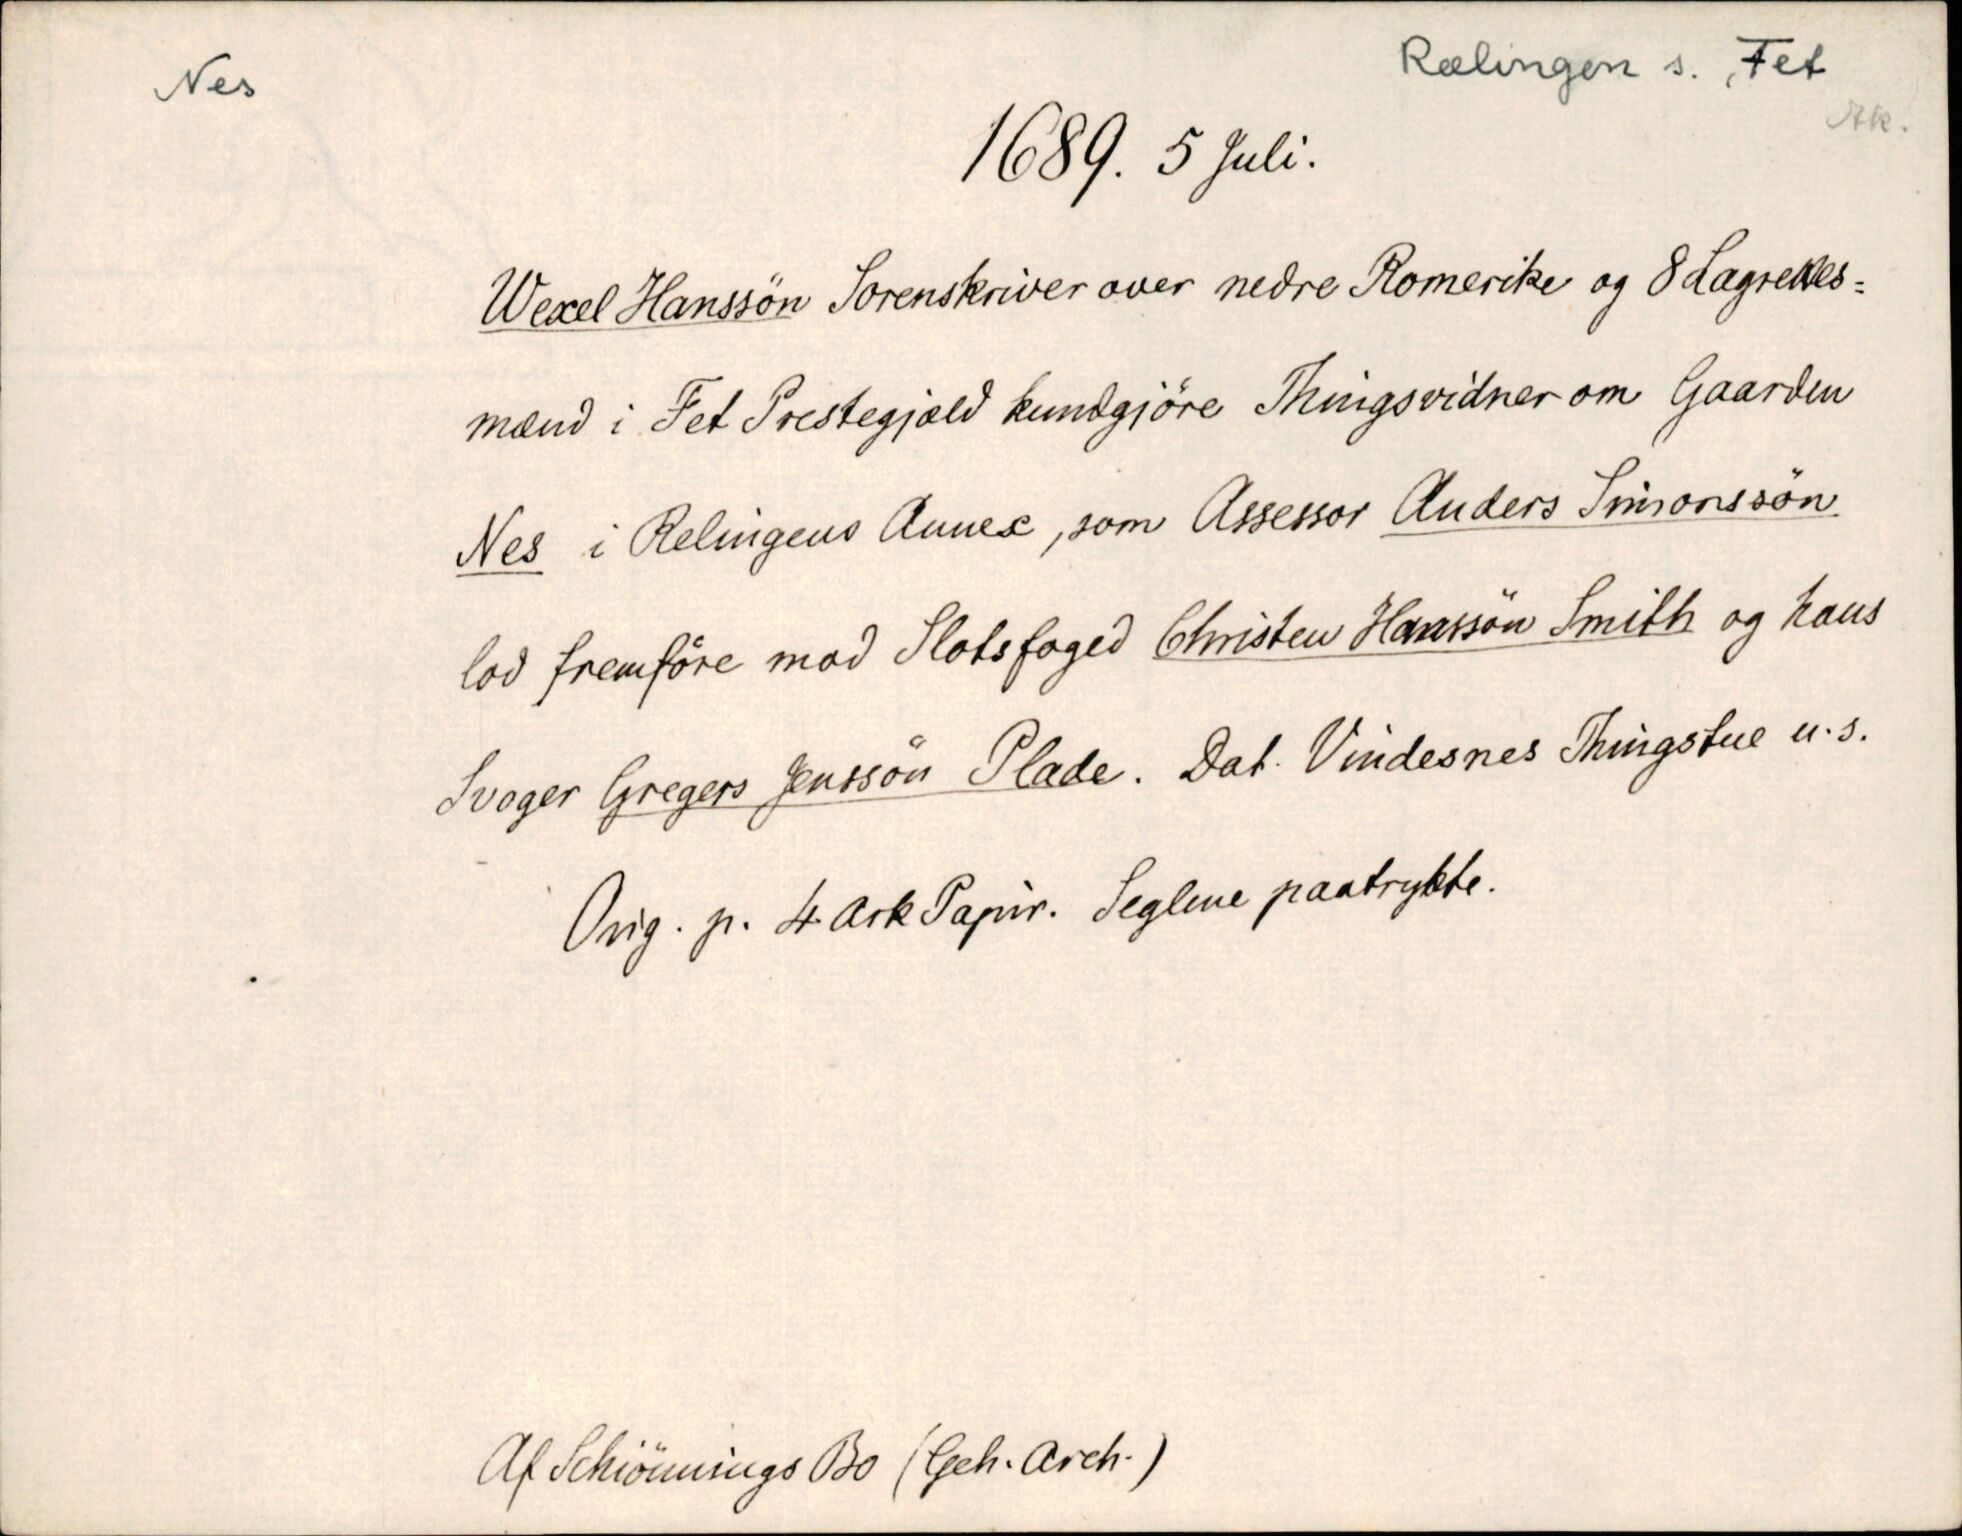 Nes
Rælingen s. Fet
Ak.
1689. 5 Juli.
Wexel Hanssön Sorenskriver over nedre Romerike og 8 Lagrettes=
mænd i Fet Prestegjæld kundgjöre Thingsvidner om Gaarden
Nes i Relingens Annex, som Assessor Anders Simonssön
lod fremföre mod Slotsfoged Christen Hanssön Smith og hans
Svoger Gregers Jenssön Plade. Dat. Vindesnes Thingstue u.s.
Orig. p. 4 Ark Papir. Seglene paatrykte.
Af Schiönnings Bo (Geh. Arch.)